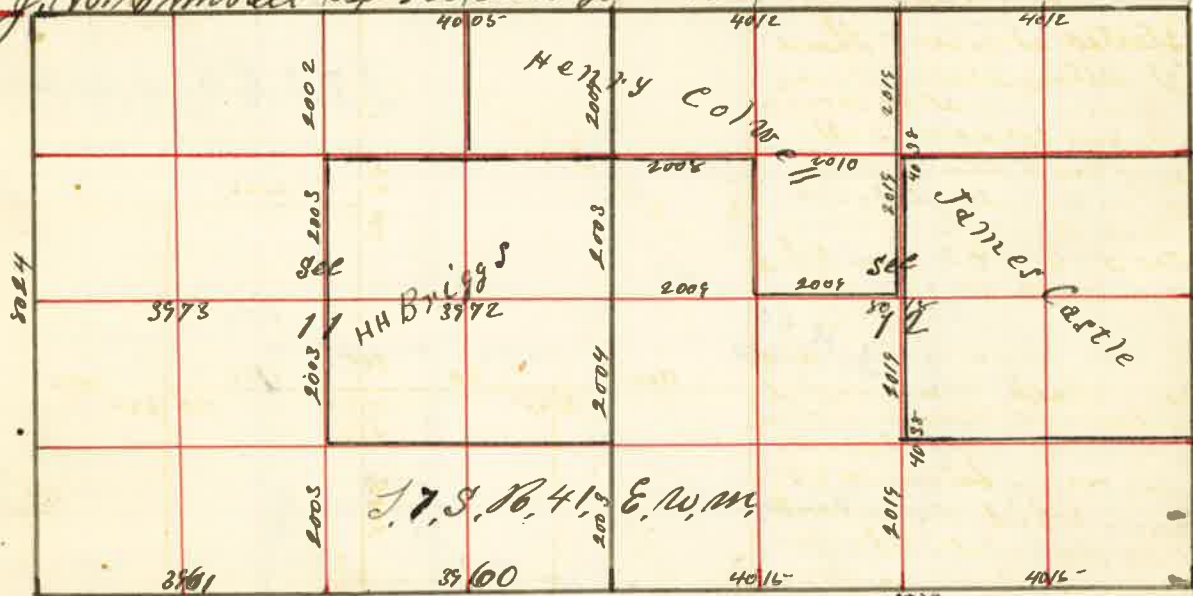 4005
4012
4012
2002
Henry Colwell
2019
2008
2010
4038
2003
2003
2019
James Castle
Sec 11
HH Briggs
Sec 12
8024
3973
3972
2009
2009
2003
2004
2019
4038
T. 7, S, R, 41, E, W, M,
2003
2003
2019
3961
3960
4015
4015